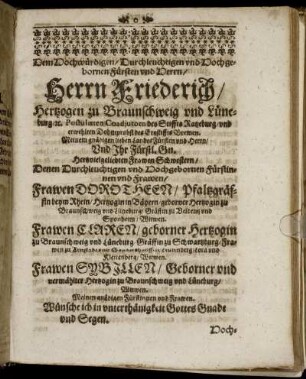 Dem Hochwürdigen/ Durchleuchtigen vnd Hochge-
bornen Fürsten vnd Herrn/
Herrn Friederich/
Hertzogen zu Braunschweig vnd Lüne-
burg ꝛc. Postulierten Coadiutorn des Stiffts Ratzeburg/ vnd
erwehlten Dohmprobst des Ertzstiffts Bremen.
Meinem gnädigen lieben Landes Fürsten vnd Herrn/
Vnd Ihr Fürstl. Gn.
Hertzvielgeliebten Frawen Schwestern/
Denen Durchleuchtigen vnd Hochgebornen Fürstin-
nen vnd Frawen/
Frawen DOROTHEEN/ Pfaltzgräf-
fin beym Rhein/ Hertzogin in Bäyern geborner Hertzogin zu
Braunschweig vnd Lüneburg/ Gräffin zu Veldentz vnd
Sponheim/ Witwen.
Frawen CLAREN/ geborner Hertzogin
zu Braunschweig vnd Lüneburg/ Gräffin zu Schwartzburg/ Fra-
wen zu
Klettenberg/ Witwen.
Frawen SYBILLEN/ Geborner vnd
vermähleter Hertzogin zu Braunschweig vnd Lüneburg/
Witwen.
Meinen gnädigen Fürstinnen vnd Frawen.
Wünsche ich in vnterthänigkeit Gottes Gnade
vnd Segen.
Hoch-